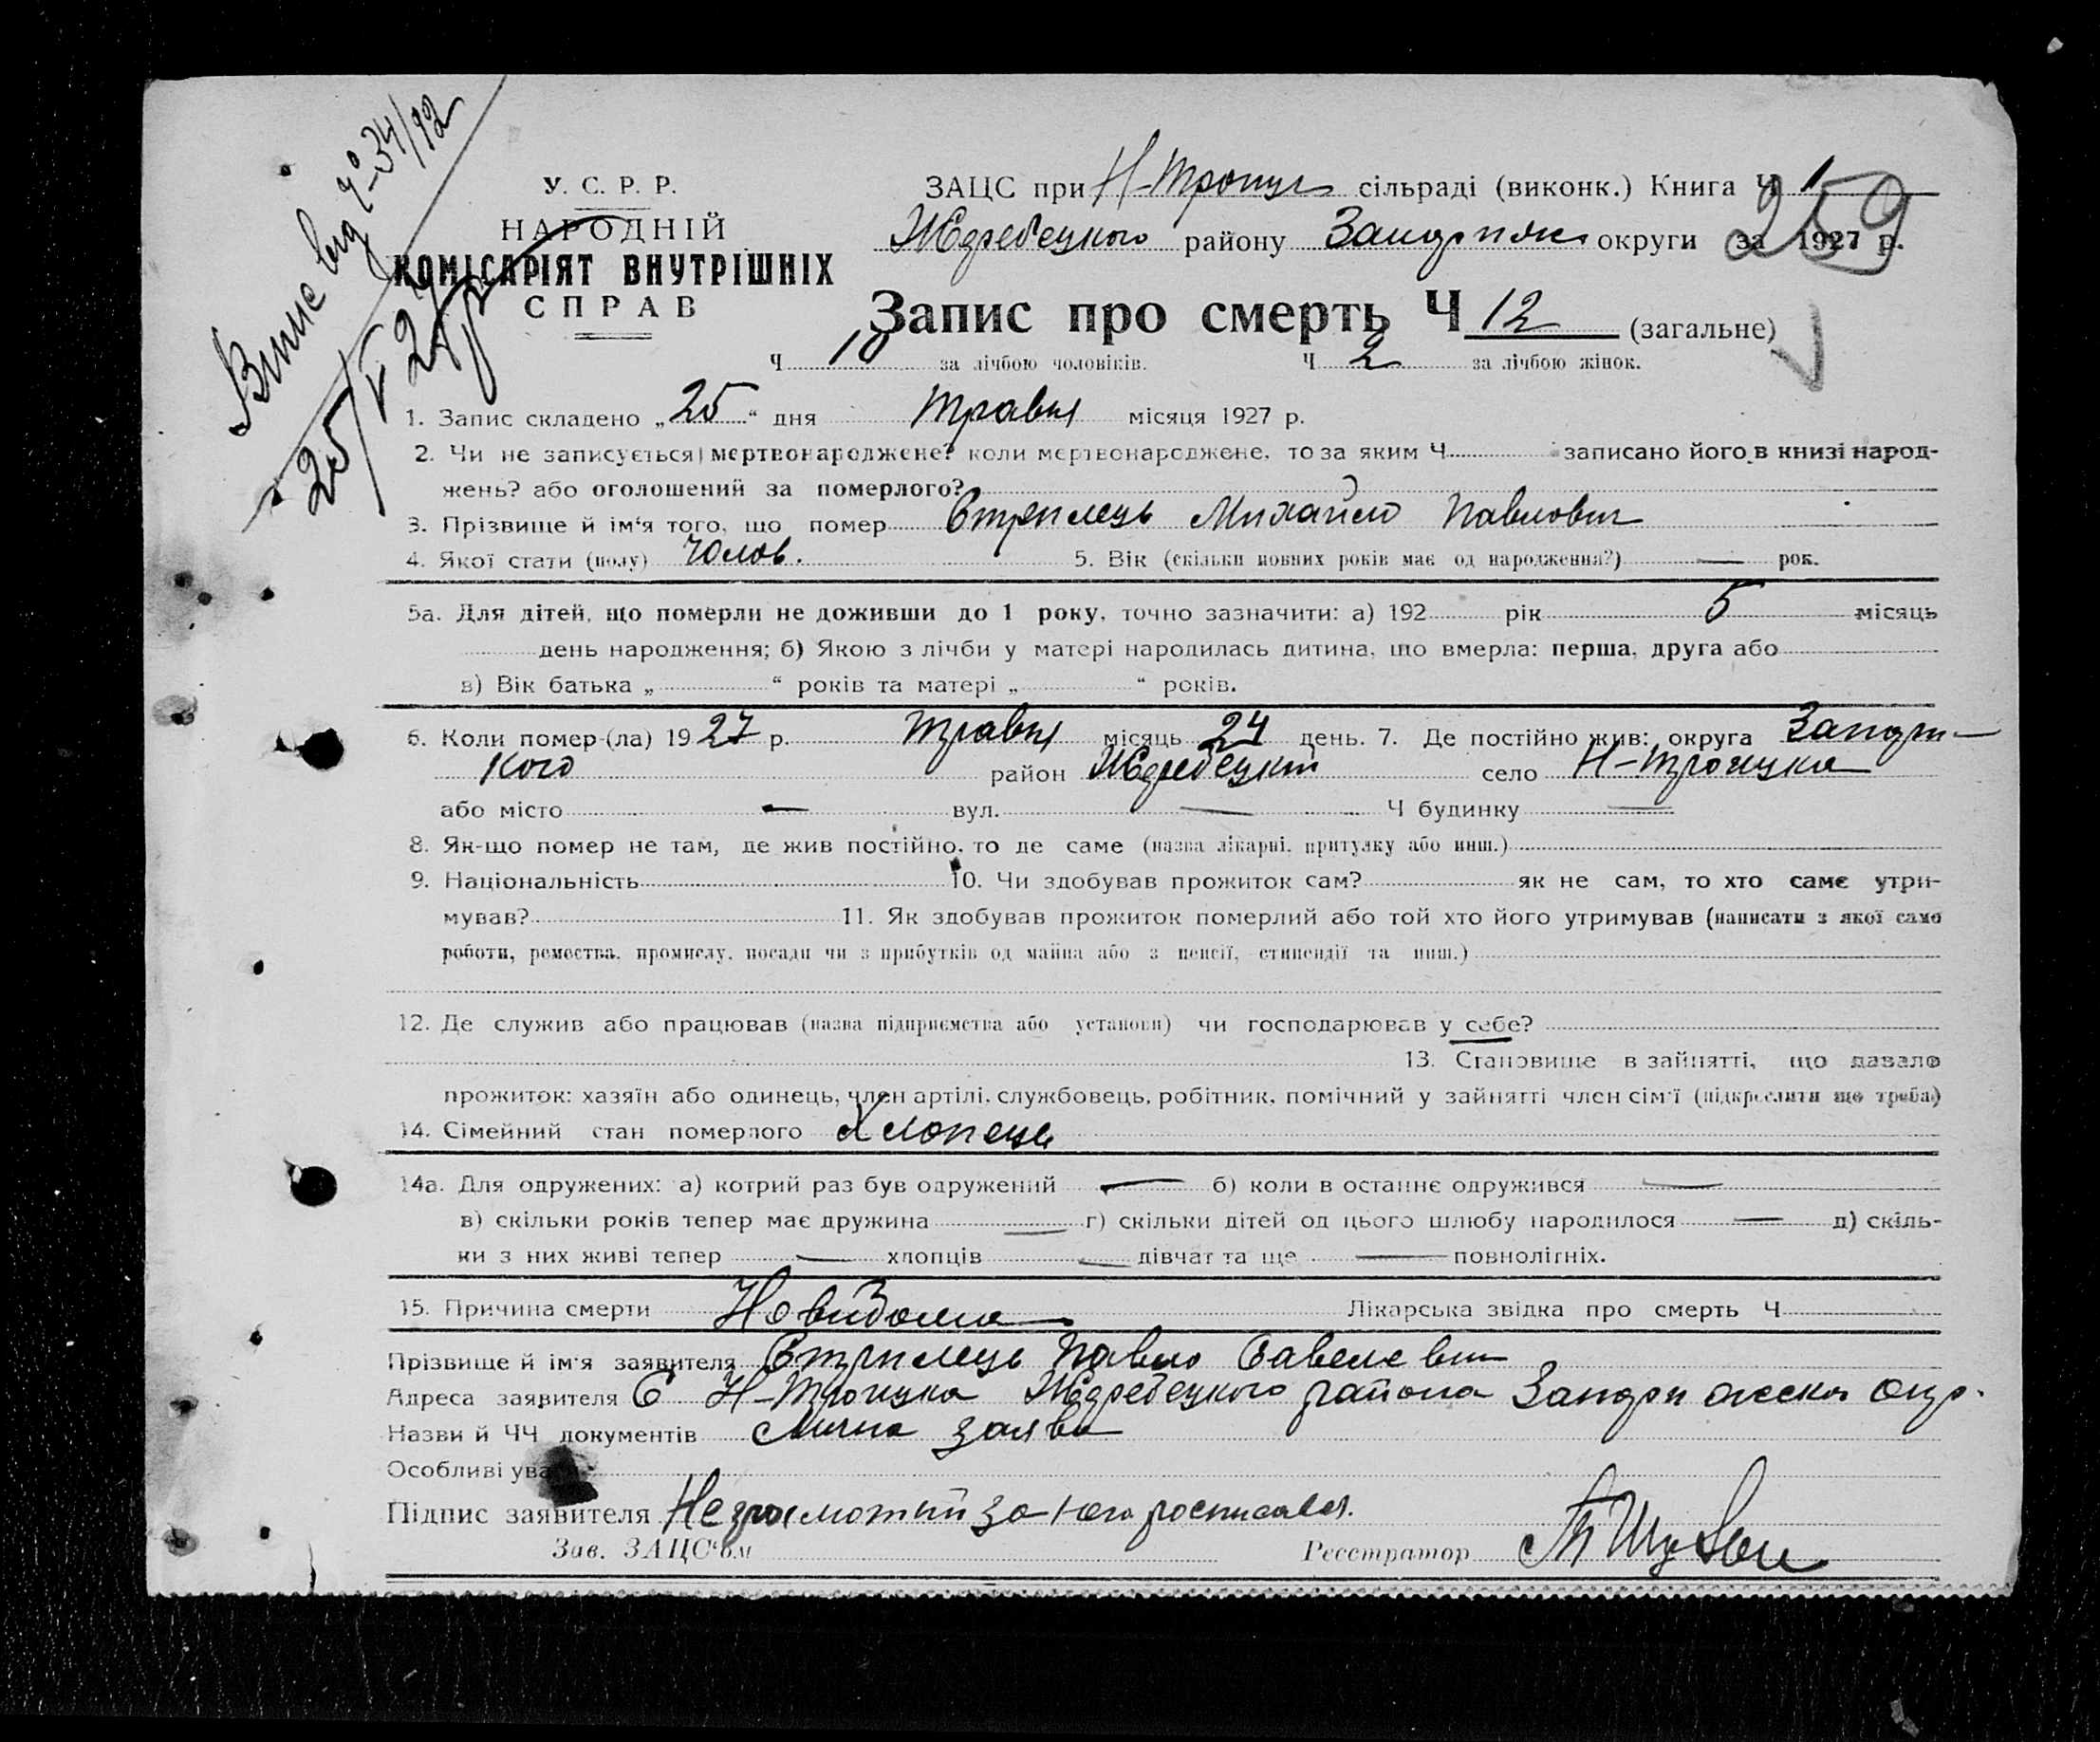 Випис вид № 34/12
25/V 27 р
У. С. Р. Р.
НАРОДНІЙ
КОМІСАРІЯТ ВНУТРІШНІХ
СПРАВ
ЗАЦС при Н-Троицк сільраді (виконк.) Книга Ч 1
Жеребецкого району Запоріж округи за 1927 р.
259
Запис про смерть Ч 12 (загальне)
Ч 10 за лічбою чоловіків. Ч 2 за лічбою жінок.
1. Запис складено „ 25 “ дня Травня місяця 1927 р.
2. Чи не записується мертвонароджене? коли мертвонароджене, то за яким Ч записано його в книзі народ-
жень? або оголошений за померлого?
3. Прізвище й ім‘я того, що помер Стрилець Михайло Павлович
4. Якої стати (полу) Чолов. 5. Вік (скільки повних років має од народження?) — рок.
5а. Для дітей, що померли не доживши до 1 року, точно зазначити: а) 192 рік 5 місяць
день народження; б) Якою з лічби у матері народилась дитина, що вмерла: перша, друга або
в) Вік батька „ “ років та матері „ “ років.
6. Коли помер-(ла) 1927 р. Травня місяць 24 день. 7. Де постійно жив: округа Запорі-
кого район Жеребецкий село Н-Троицка
або місто — вул. — Ч будинку —
8. Як-що помер не там, де жив постійно, то де саме (назва лікарні, притулку або инш.)
9. Національність 10. Чи здобував прожиток сам? як не сам, то хто саме утри-
мував? 11. Як здобував прожиток померлий або той хто його утримував (написати з якої само
роботи, ремества, промислу, посади чи з прибутків од майна або з пенсії, стипендії та инш.)
12. Де служив або працював (назва підприємства або установи) чи господарював у себе?
13. Становище в зайнятті, що давало
прожиток: хазяїн або одинець, член артілі, службовець, робітник, помічний у зайнятті член сім‘ї (підкреслити що треба)
14. Сімейний стан померлого Хлопець
14а. Для одружених: а) котрий раз був одружений — б) коли в останнє одружився —
в) скільки років тепер має дружина — г) скільки дітей од цього шлюбу народилося — д) скіль-
ки з них живі тепер — хлопців — дівчат та ще — повнолітніх.
15. Причина смерти Невидома Лікарська звідка про смерть Ч
Прізвище й ім‘я заявителя Стрилець Павло Савелевич
Адреса заявителя С Н-Троицка Жеребецкого района Запорижска окр.
Назви й ЧЧ документів Лична заява
Особливі ува
Підпис заявителя Неграмотний за него росписався.
Зав. ЗАЦС‘ом Реєстратор